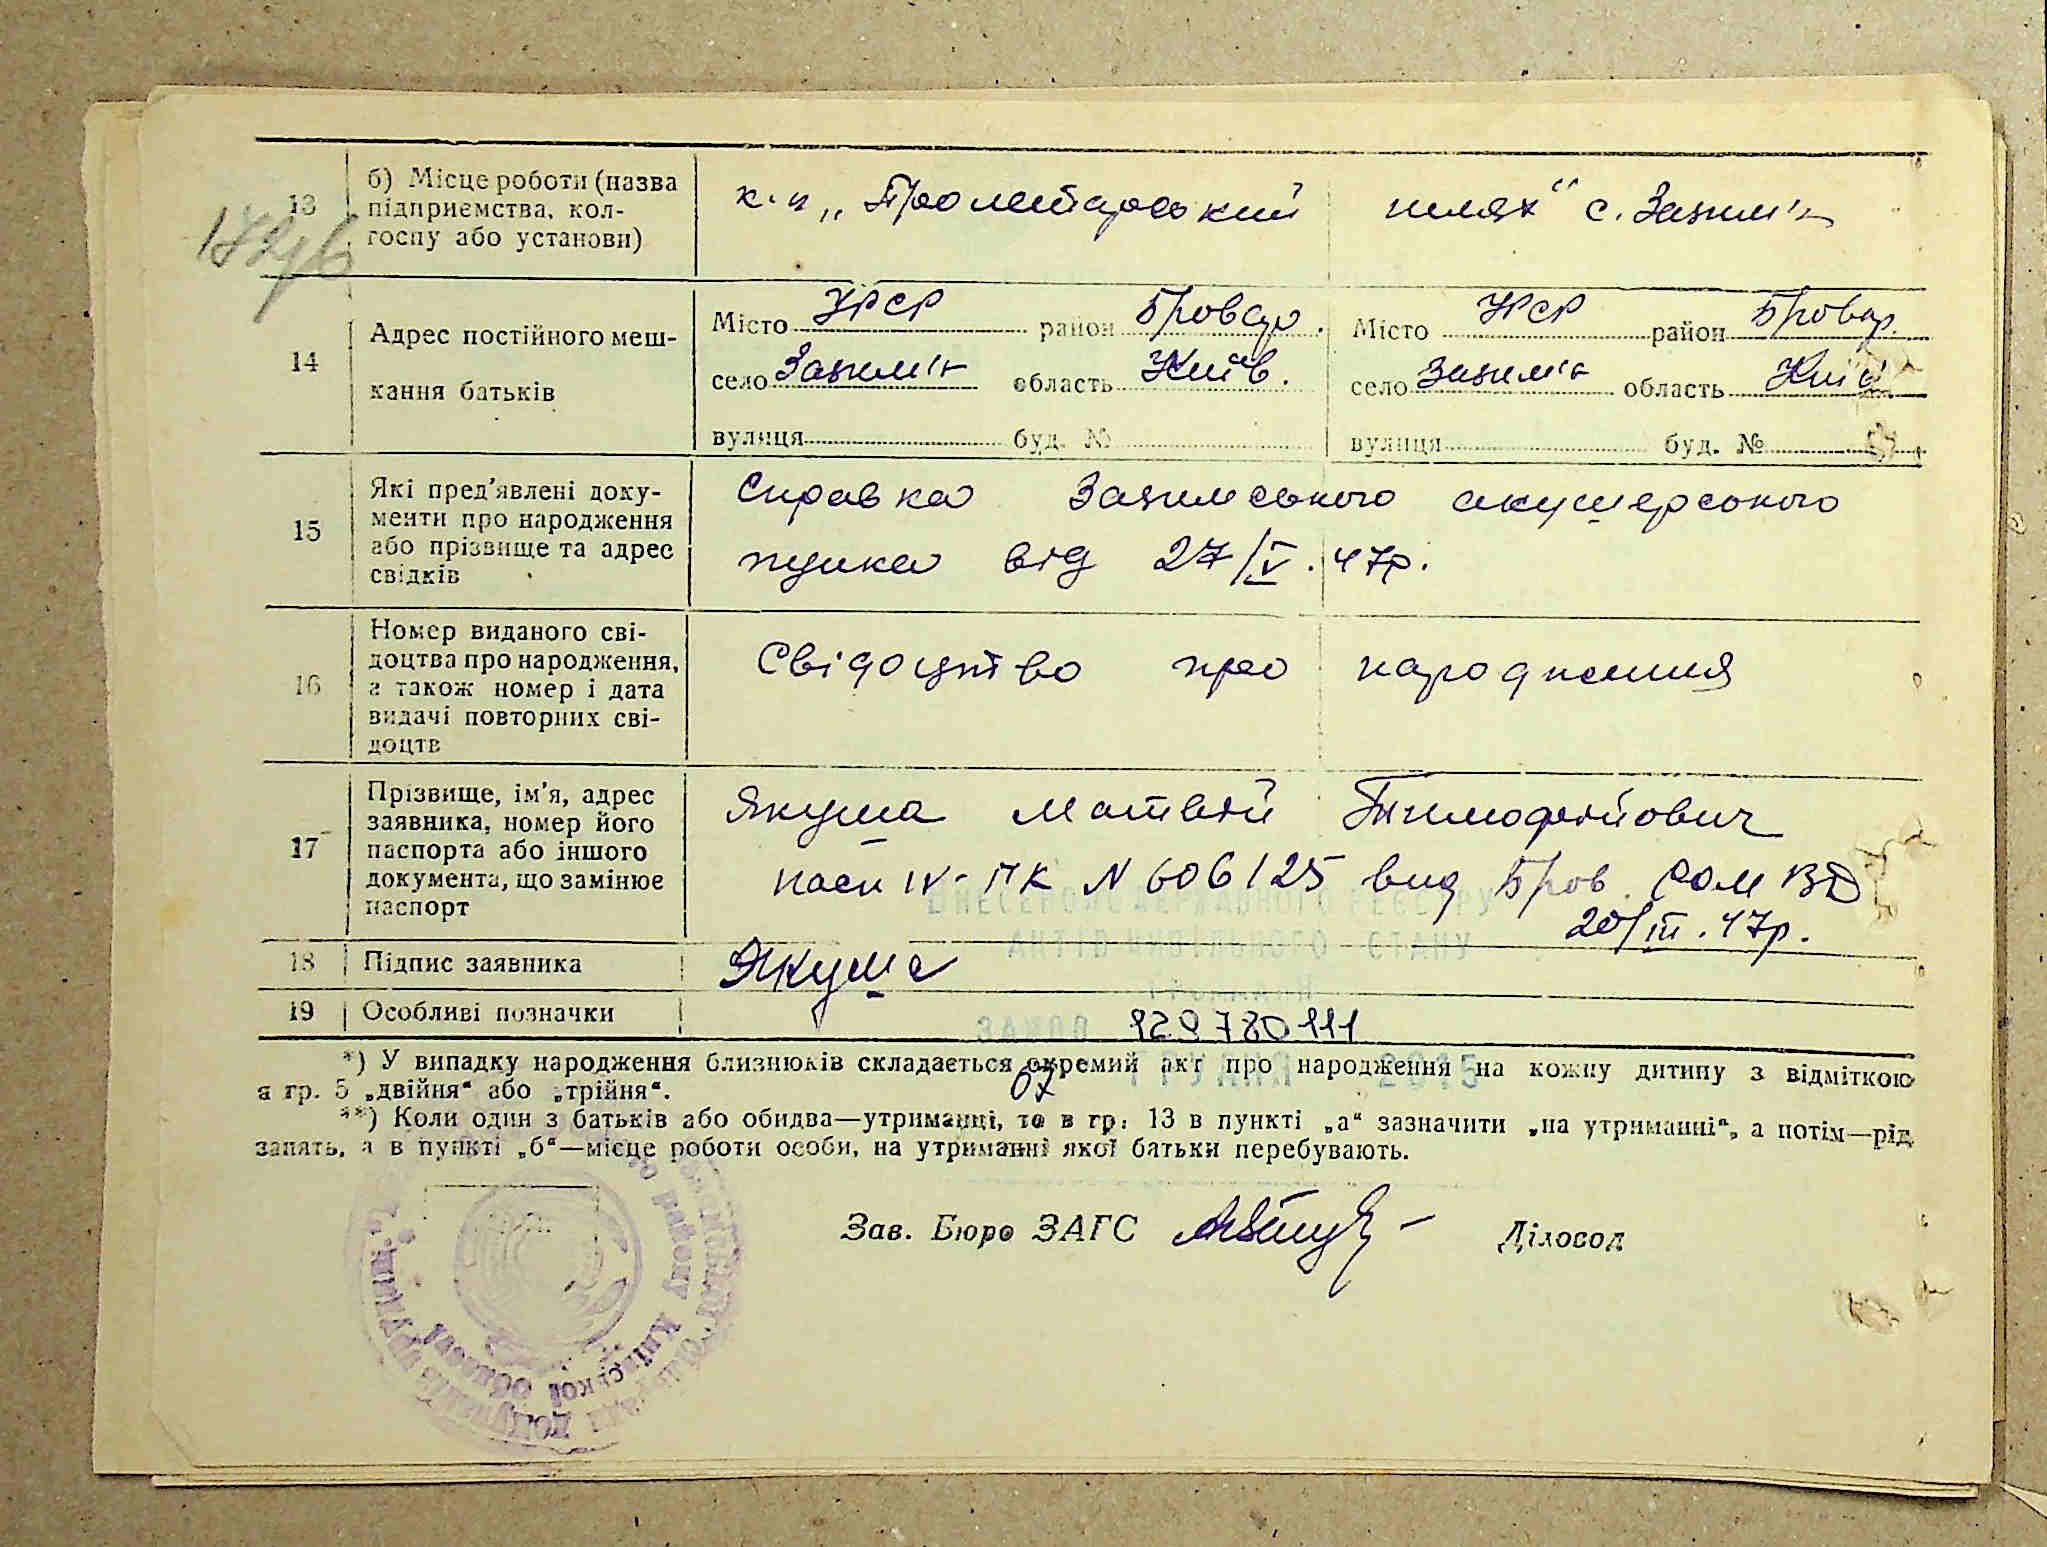 13 б) Місце роботи (назва підприємства, кол-
госпу або установи)
к-п „Пролетарський шлях" с. Зазим'я
14 Адрес постійного меш-
кання батьків
Місто УРСР район Бровар. Місто УРСР район Бровар.
село Зазим'я область Київ. село Зазим'я область Київ
вулиця буд. № вулиця буд. №
15 Які пред'явлені доку-
менти про народження
або прізвище та адрес
свідків
Справка Зазимського акушерського
пунка від 27/V.47р.
16 Номер виданого сві-
доцтва про народження,
а також номер і дата
видачі повторних сві-
доцтв
Свідоцтво про народження
17 Прізвище, ім'я, адрес
заявника, номер його
паспорта або іншого
документа, що замінює
паспорт
Якуша Матвій Тимофійович
пасп IV-ПК N 606125 вид Бров. РОМВД
20/III.47р.
ВНЕСЕНО ДО ДЕРЖАВНОГО РЕЄСТРУ
АКТІВ ЦИВІЛЬНОГО СТАНУ
ГРОМАДЯН
18 Підпис заявника Якуша
19 Особливі позначки
ЗАМПО
07 ГРУДНЯ 2015
*) У випадку народження близнюків складається окремий акт про народження на кожну дитину з відміткою
в гр. 5 „двійня" або „трійня".
**) Коли один з батьків або обидва—утриманці, то в гр. 13 в пункті „а" зазначити „на утриманні", а потім—рід
занять, а в пункті „б"—місце роботи особи, на утриманні якої батьки перебувають.
Зав. Бюро ЗАГС Діловод
району Київської області